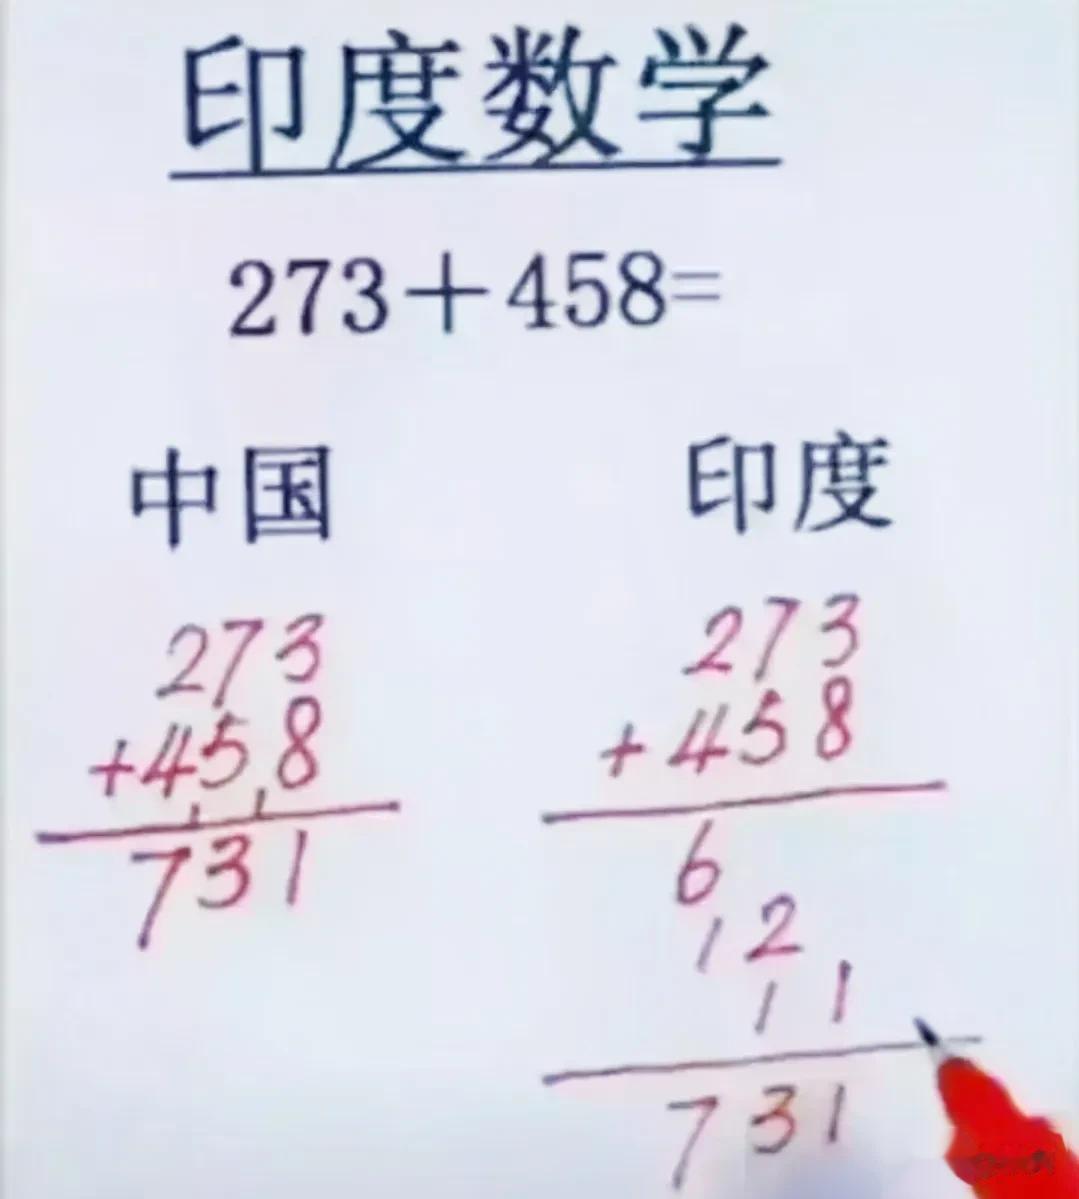 印度数学
273+458=
中国
273
+458
1 1
731
印度
273
+458
6
12
11
731